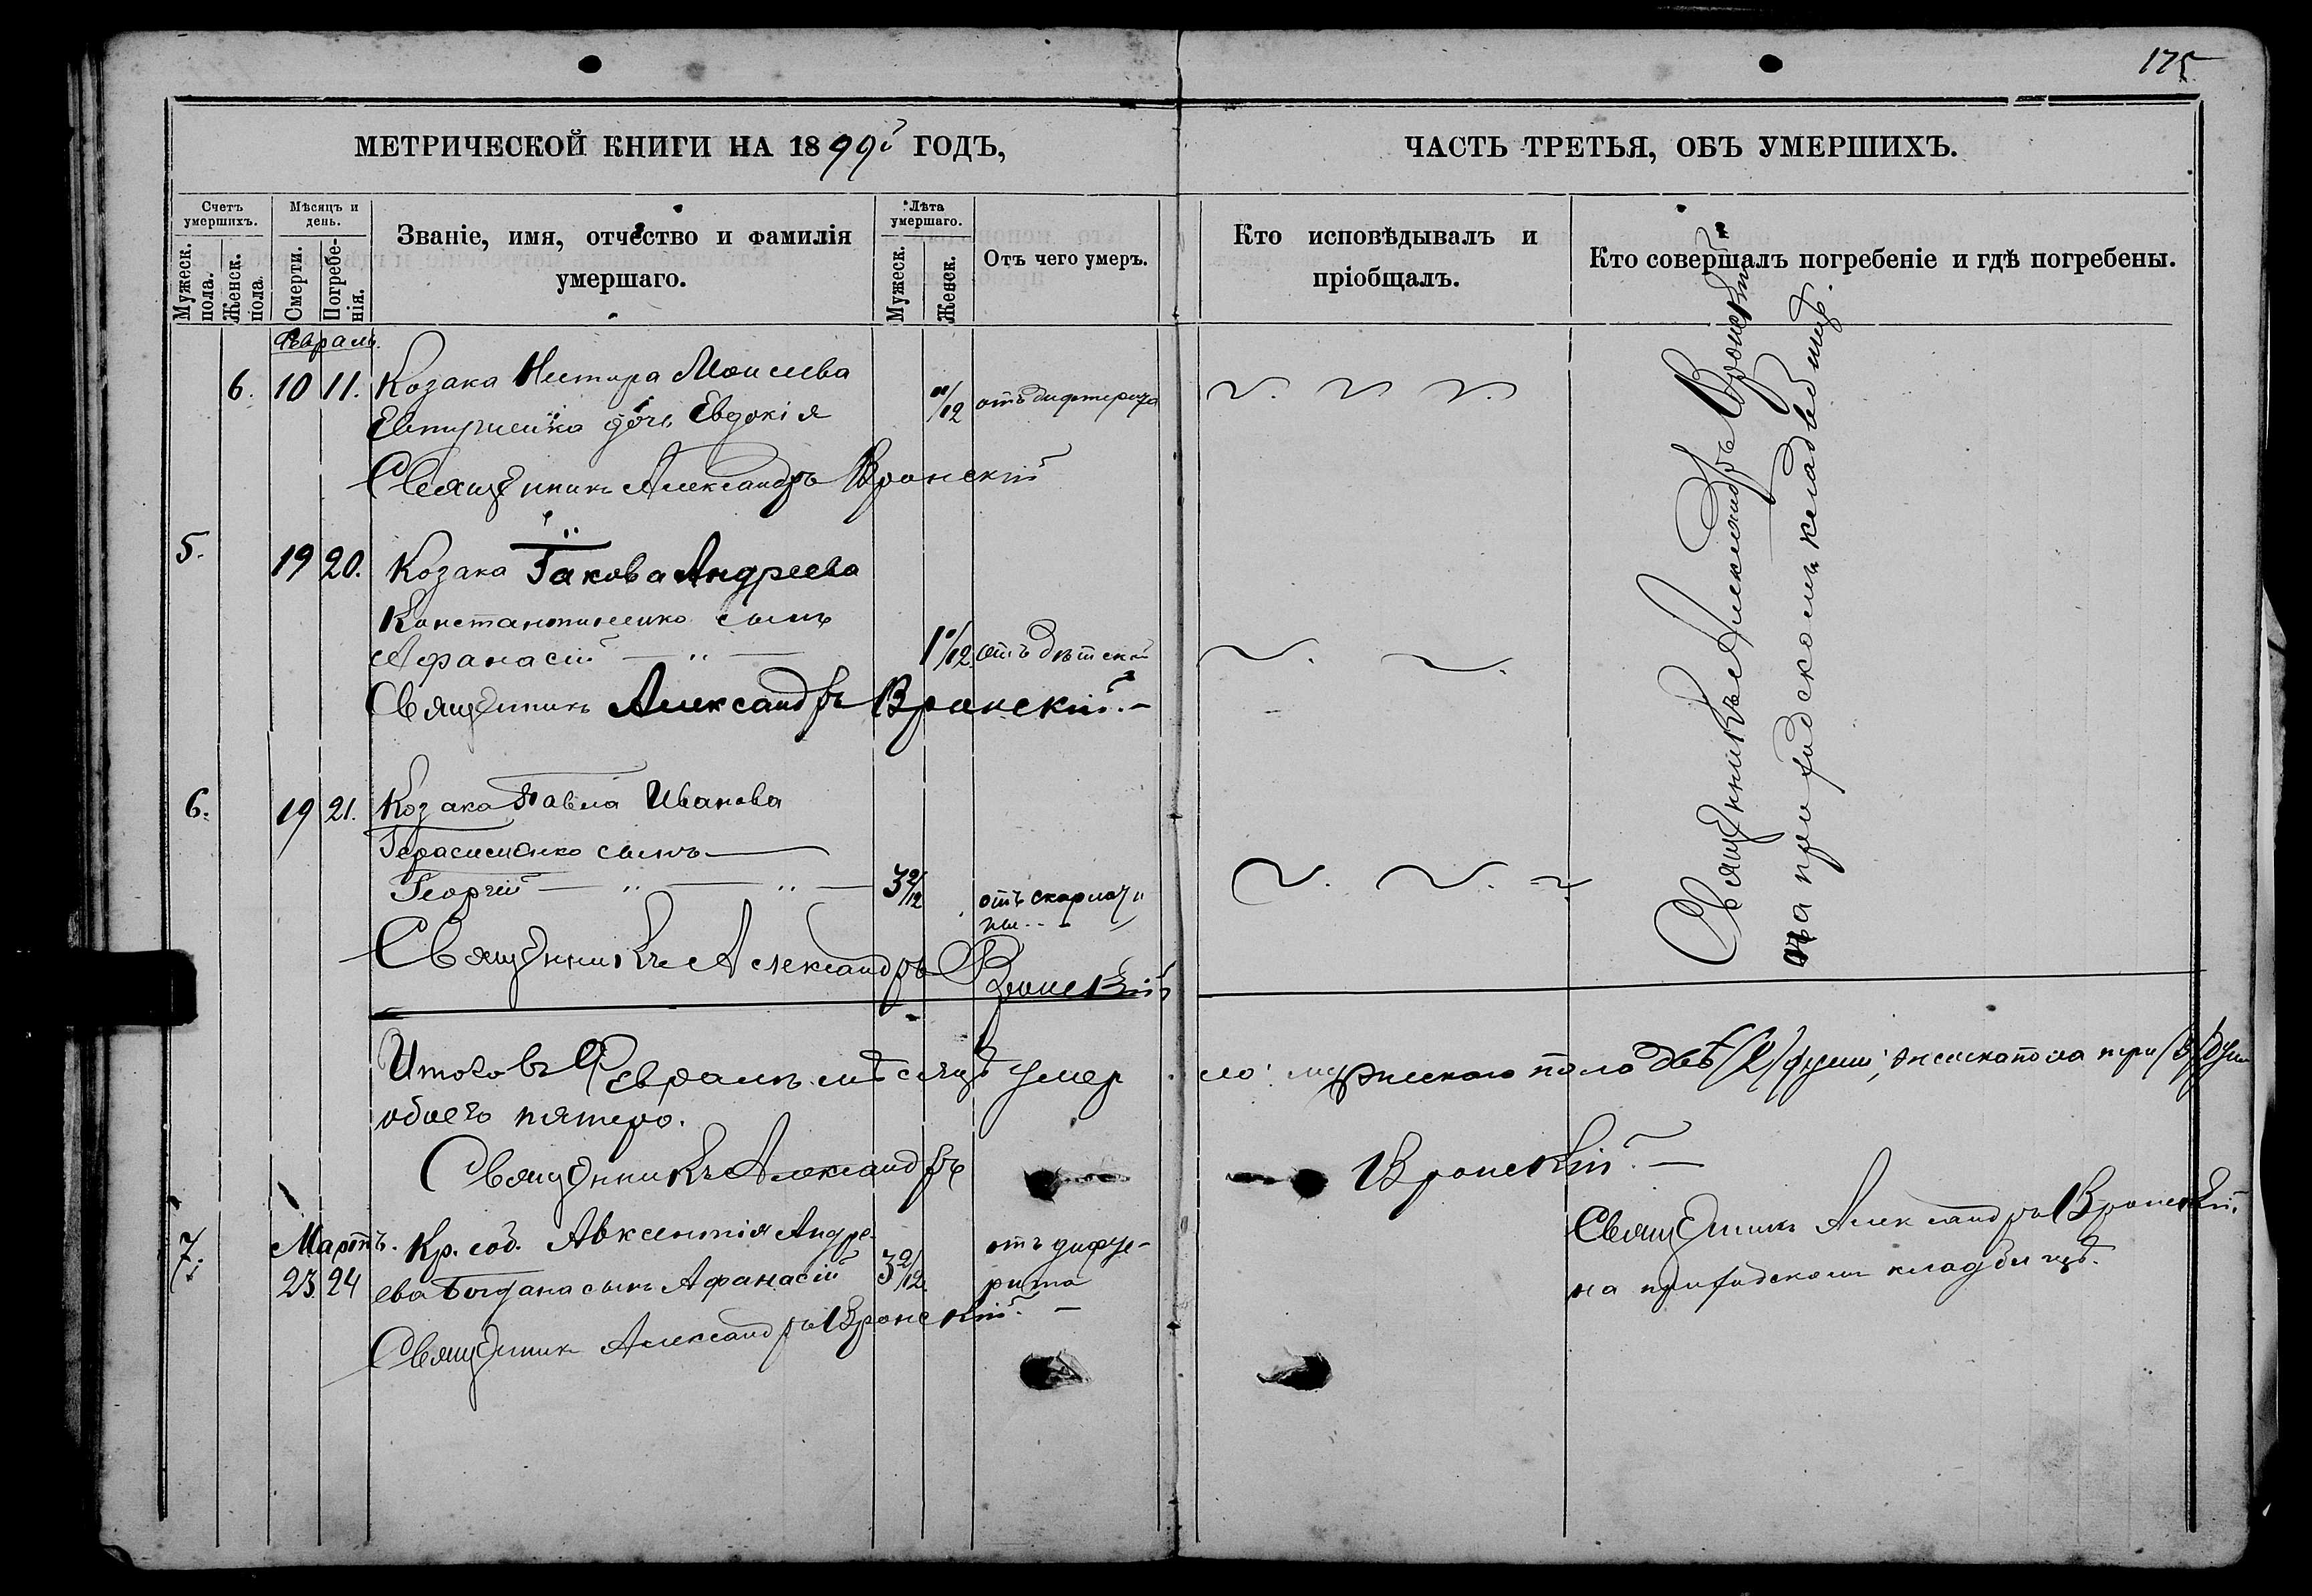 175
МЕТРИЧЕСКОЙ КНИГИ НА 1899й ГОДЪ,
ЧАСТЬ ТРЕТЬЯ, ОБЪ УМЕРШИХЪ.
Счетъ умершихъ.
Мужеск. пола.
Женск. пола.
Мѣсяцъ и день.
Смерти.
Погребе-
нія.
Званіе, имя, отчество и фамилія
умершаго.
Лѣта умершаго.
Мужеск.
Женск.
Отъ чего умеръ.
Кто исповѣдывалъ и
пріобщалъ.
Кто совершалъ погребеніе и гдѣ погребены.
Февраль.
6. 10 11. Козака Нестора Моисеева
Евтушенка дочь Евдокія /12 отъ дифтерита
Священникъ Александръ Вронскій
5. 19 20. Козака Іакова Андреева
Константиненко сынъ
Афанасій 1 /12 отъ дѣтской
Священникъ Александръ Вронскій.
6. 19 21. Козака Павла Иванова
Герасименко сынъ
Георгій 3 2/12 отъ скарлати
ны
Священникъ Александръ Вронскій
Священникъ Александръ Вронскій
на приходскомъ кладбищѣ.
Итого въ Февралѣ мѣсяцѣ умер ло: мужескаго пола двѣ /2/ души, женска пола три /3/ души
обоего пятеро.
Священникъ Александръ Вронскій.
Мартъ.
7. 23 24 Кр. соб. Авксентія Андре-
ева Богдана сынъ Афанасій 3 2/12. отъ дифте-
рита
Священникъ Александръ Вронскій.
Священникъ Александръ Вронскій.
на приходскомъ кладбищѣ.